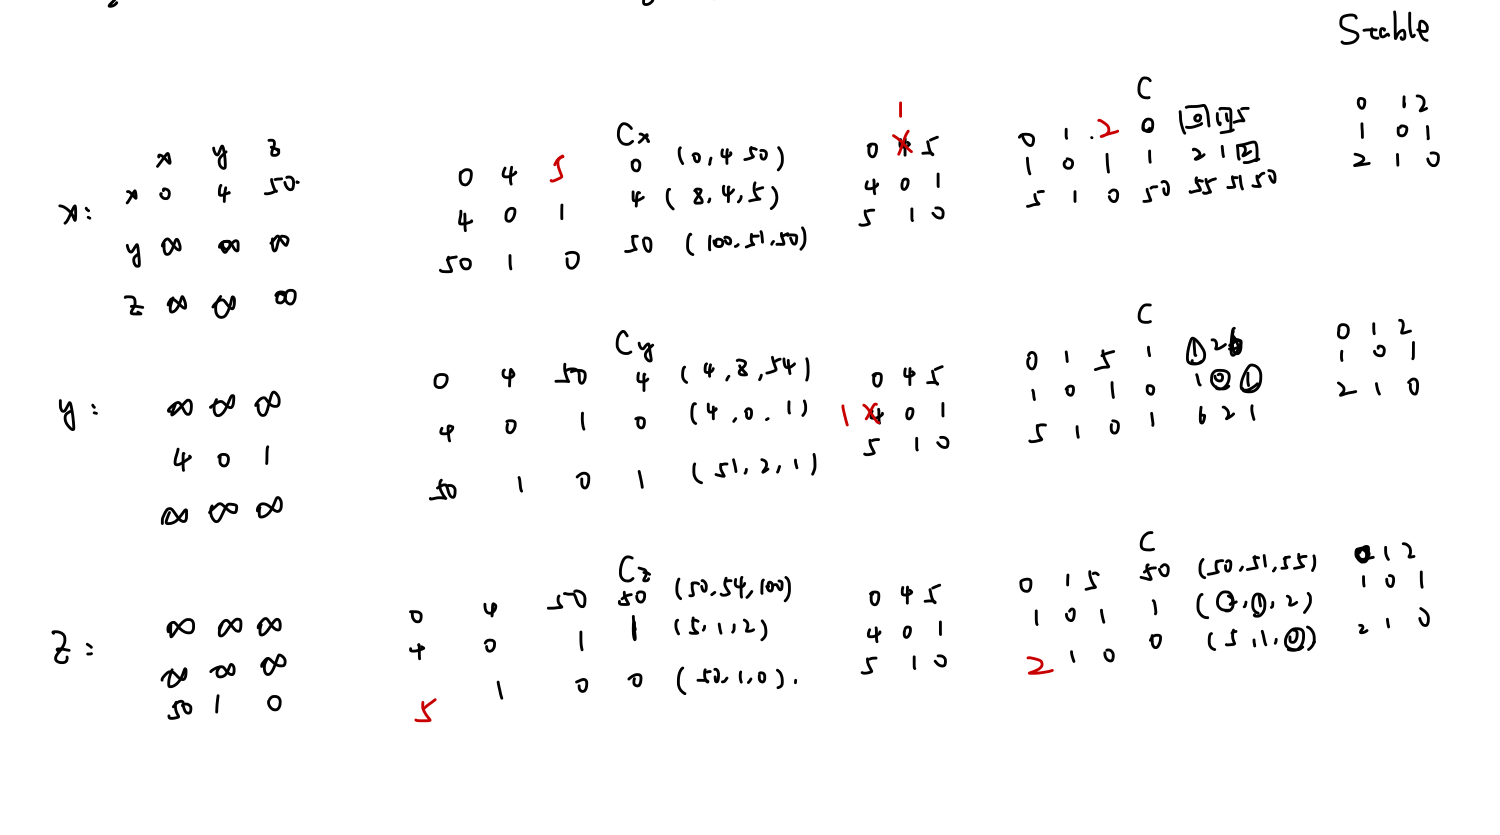 Stable
x y z
x: x 0 4 50
y ∞ ∞ ∞
z ∞ ∞ ∞
0 4 5
4 0 1
50 1 0
Cx
0 (0, 4 50)
4 (8, 4, 5)
50 (100, 51, 50)
1
0 5
4 0 1
5 1 0
C
0 1 2 0 0 1 5
1 0 1 1 2 1 2
5 1 0 50 55 51 50
0 1 2
1 0 1
2 1 0
y:
∞ ∞ ∞
4 0 1
∞ ∞ ∞
Cy
0 4 50 4 (4, 8, 54)
4 0 1 0 (4, 0, 1)
50 1 0 1 (51, 2, 1)
0 4 5
1 4 0 1
5 1 0
C
0 1 5 1 1 2 6
1 0 1 0 1 0 1
5 1 0 1 6 2 1
0 1 2
1 0 1
2 1 0
z:
∞ ∞ ∞
∞ ∞ ∞
50 1 0
Cz
0 4 50 50 (50, 54, 100)
4 0 1 1 (5, 1, 2)
5 1 0 0 (50, 1, 0).
0 4 5
4 0 1
5 1 0
C
0 1 5 50 (50, 51, 55)
1 0 1 1 ( , 1, 2)
2 1 0 0 (5, 1, 0)
0 1 2
1 0 1
2 1 0